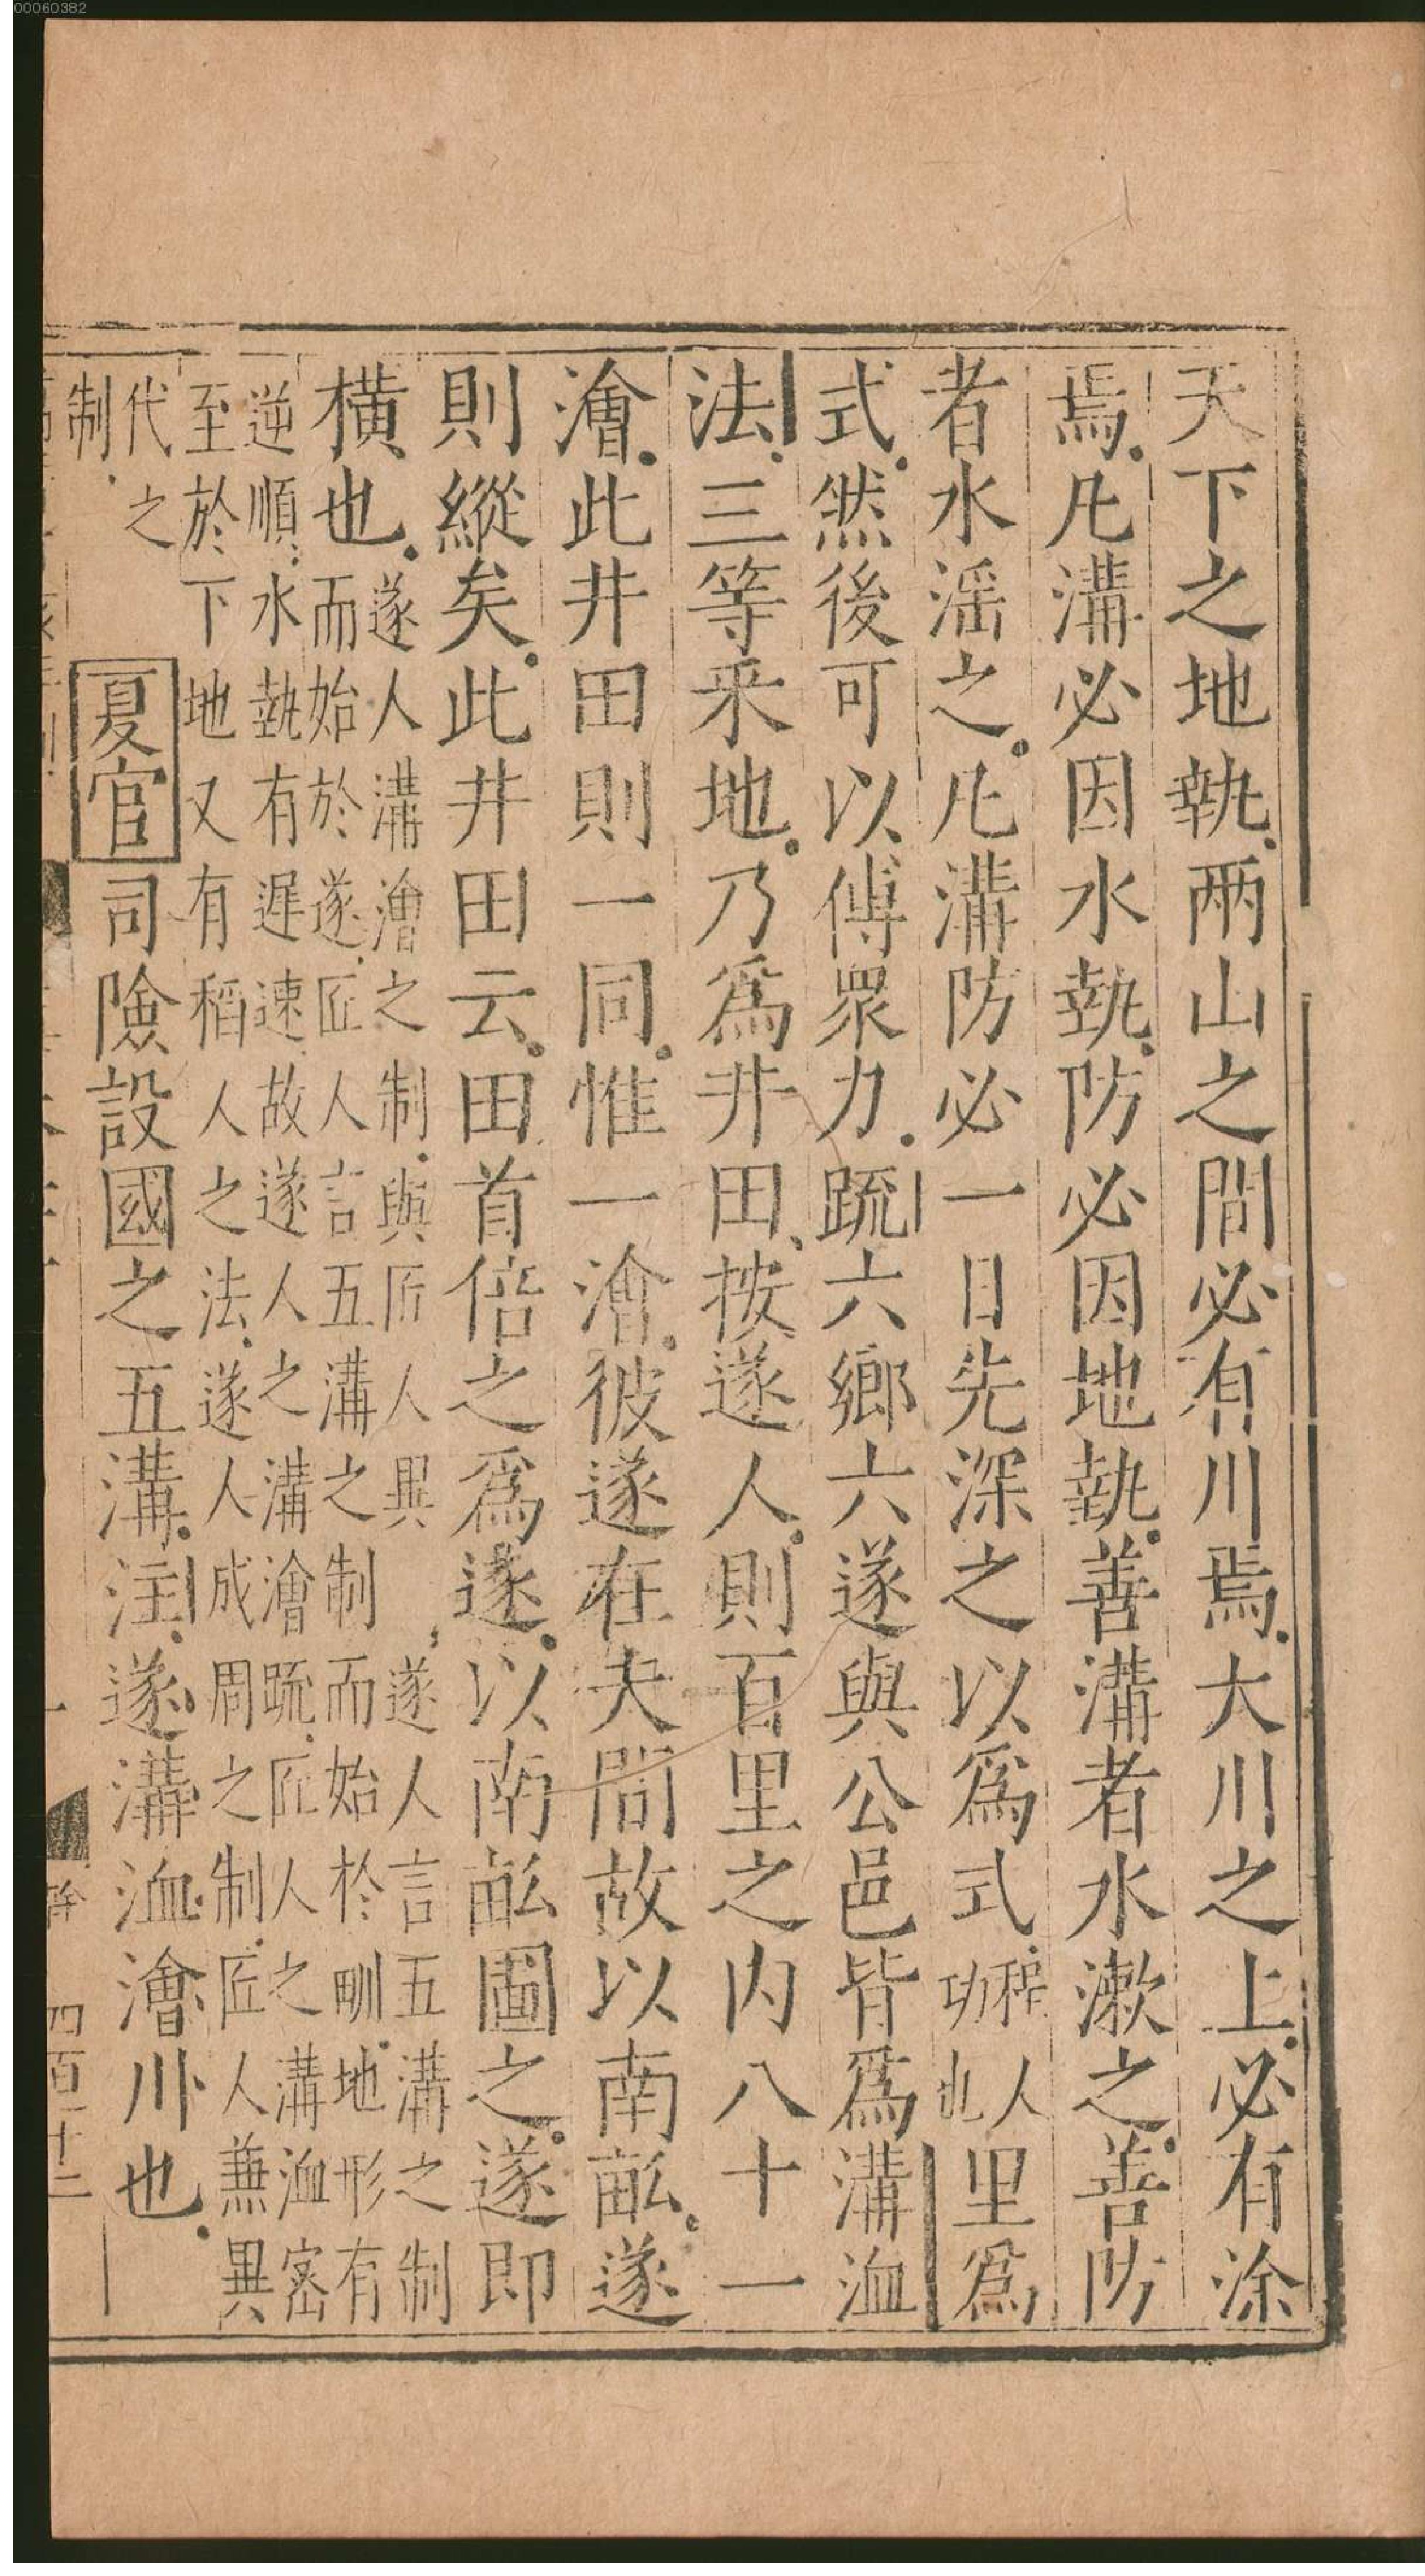 00060382
天下之地埶兩山之間必有川焉大川之上必有涂
焉凡溝必因水埶防必因地埶善溝者水漱之善防
者水淫之凡溝防必一日先深之以爲式程人功也里爲
式然後可以傅衆力疏六鄉六遂與公邑皆爲溝洫
法三等采地乃爲井田按遂人則百里之内八十一
澮此井田則一同惟一澮彼遂在夫間故以南畝遂
則縱矣此井田云田首倍之爲遂以南畝圖之遂即
橫也遂人溝澮之制與匠人異 遂人言五溝之制
而始於遂匠人言五溝之制而始於甽地形有
逆順水埶有遲速故遂人之溝澮疏匠人之溝洫密
至於下地又有稻人之法遂人成周之制匠人兼異
代之
制 夏官司險設國之五溝注遂溝洫澮川也
四百十二